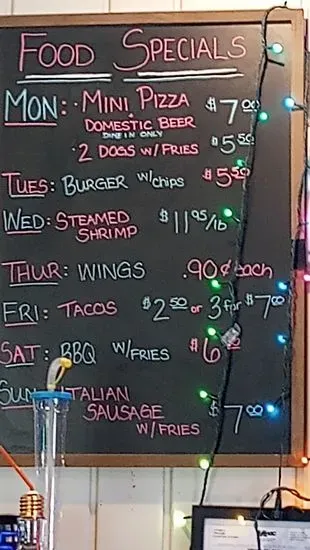 FOOD SPECIALS
MON: · MINI PIZZA $7.00
+
DOMESTIC BEER
DINE IN ONLY
· 2 DOGS W/ FRIES $5.50
TUES: BURGER W/chips $5.50
WED: STEAMED SHRIMP $11.95/lb
THUR: WINGS .90¢ each
FRI: TACOS $2.50 or 3 for $7.00
SAT: BBQ W/FRIES $6
SUN: ITALIAN
SAUSAGE
W/FRIES $7.00